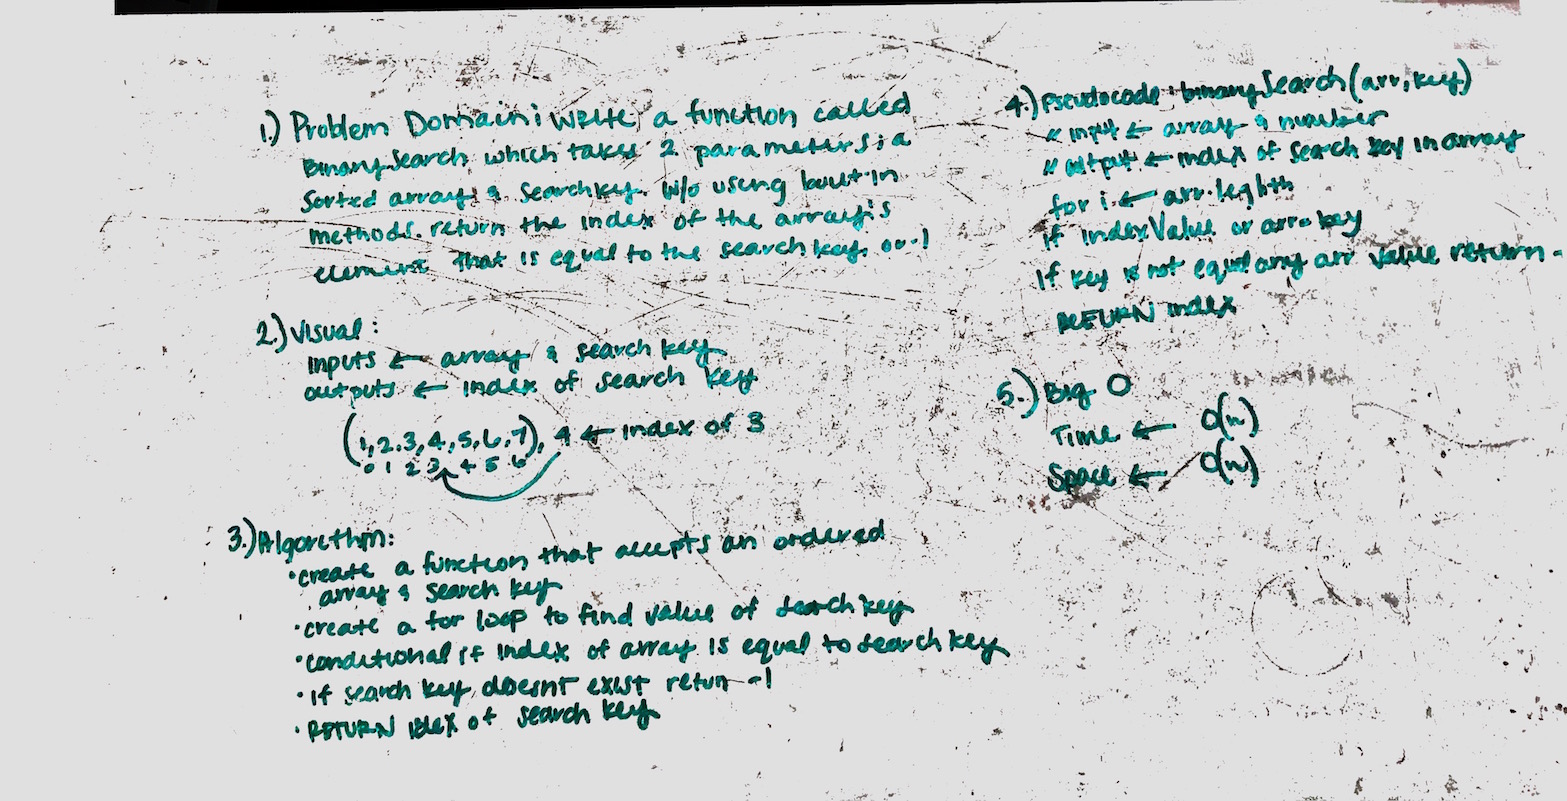 1.) Problem Domain: WRITE a function called
BinarySearch which takes 2 parameters: a
Sorted array & searchkey. W/o using built-in
methods, return the index of the array's
element that is equal to the search key, or -1
2.) Visual:
Inputs ← array & search key
outputs ← index of search key
(1,2,3,4,5,6,7), 4 ← index of 3
0 1 2 3 4 5 6
3.) Algorithm:
• create a function that accepts an ordered
array & search key
• create a for loop to find value of search key
• conditional if index of array is equal to search key
• if search key doesnt exist retun -1
• RETURN idex of search key
4.) Pseudocode: binarySearch(arr, key)
// input ← array & number
// output ← index of search key in array
for i ← arr.leghth
if indexValue or arr key
If key is not equal any arr value return -
RETURN index
5.) Big O
Time ← O(n)
Space ← O(n)